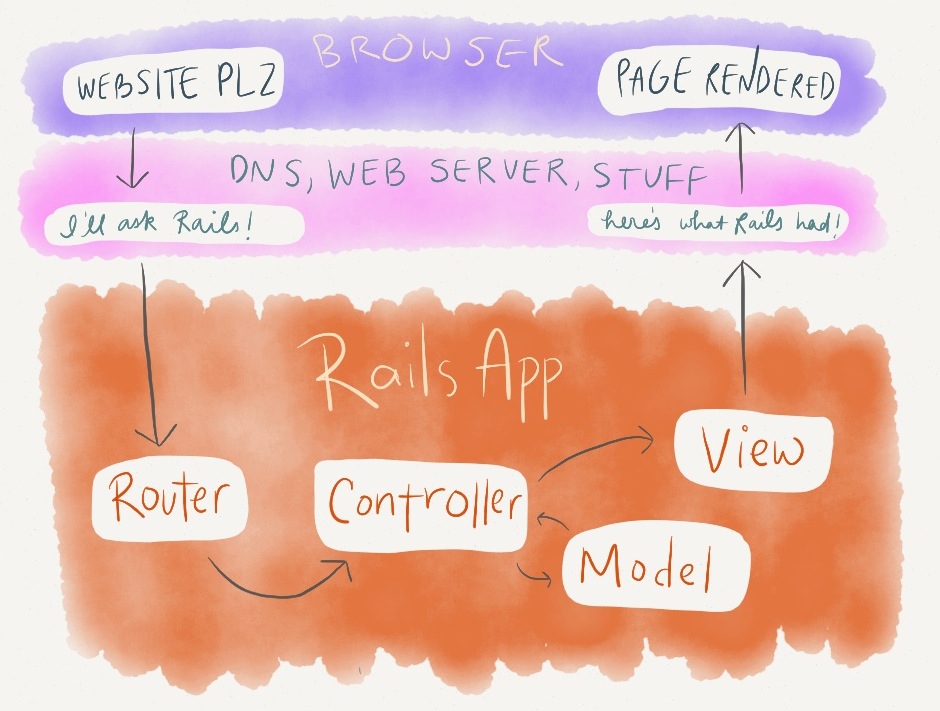 BROWSER
WEBSITE PLZ
PAGE RENDERED
DNS, WEB SERVER, STUFF
I'll ask Rails!
here's what Rails had!
Rails App
Router
Controller
View
Model